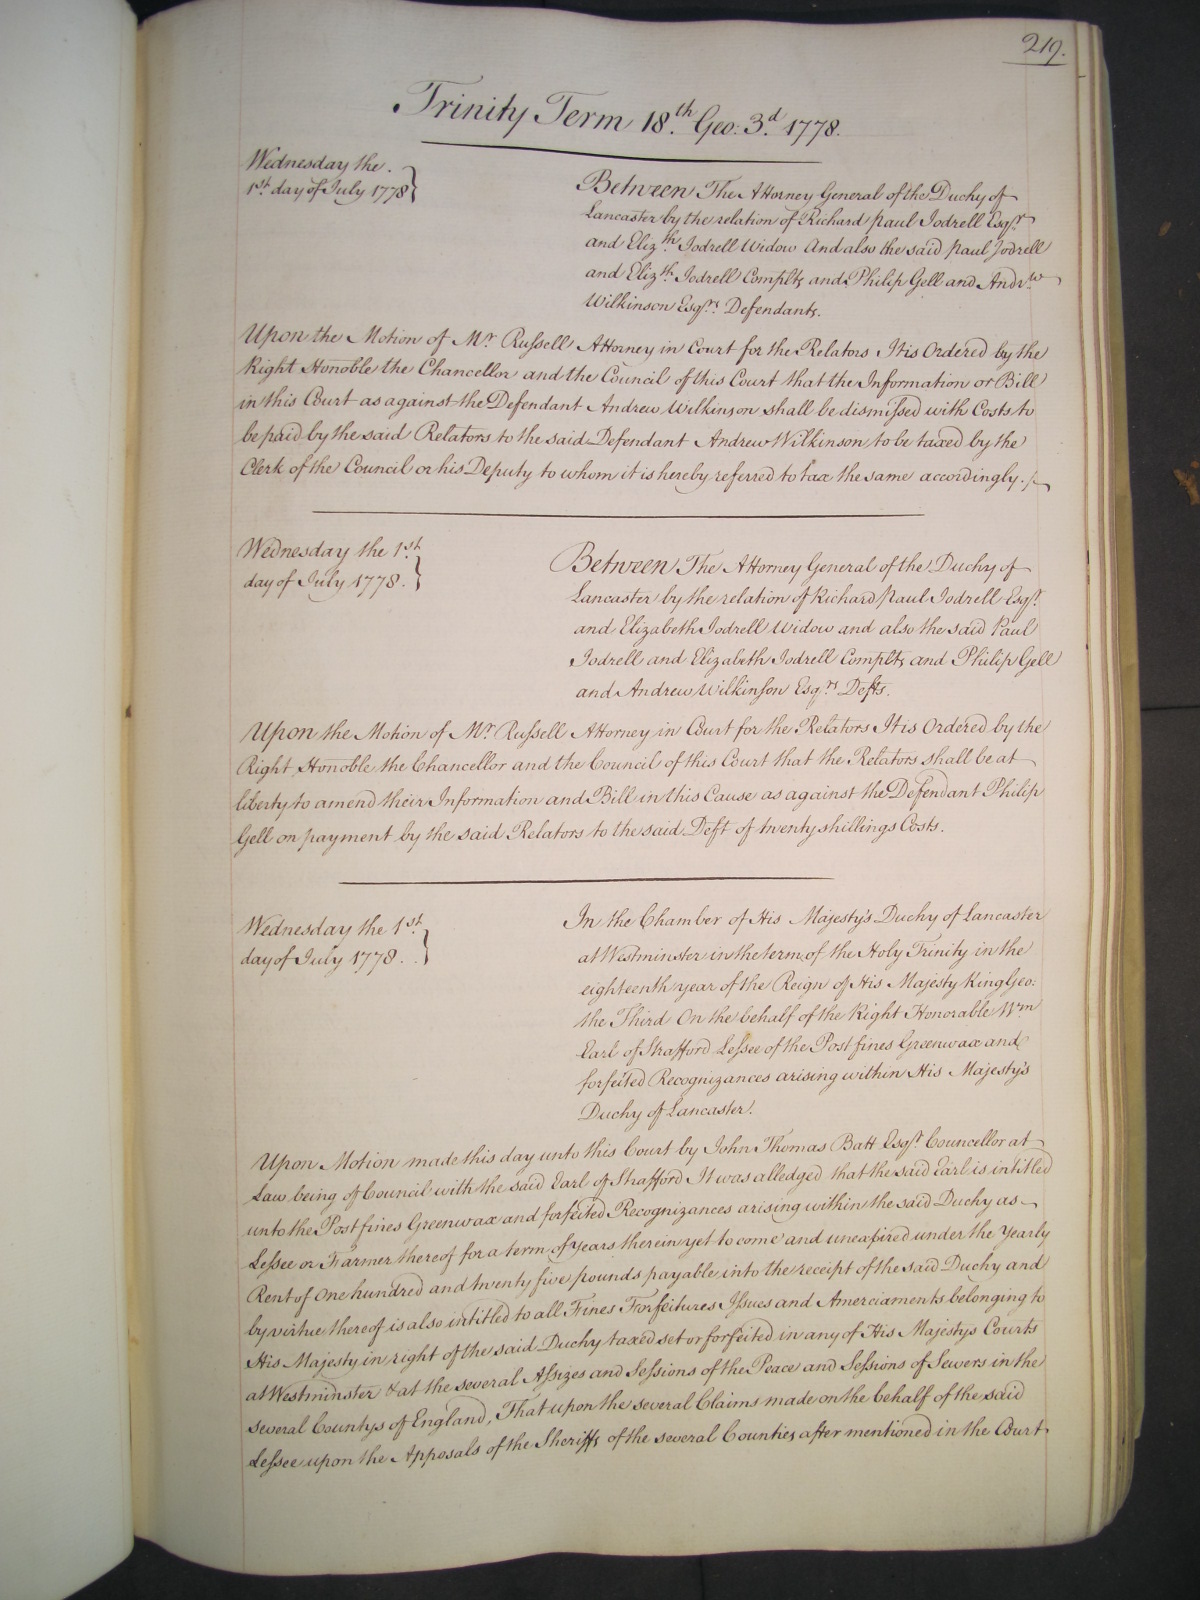 219.
Trinity Term 18.th Geo: 3.d 1778.
Wednesday the
1st. day of July 1778
Between The Attorney General of the Duchy of
Lancaster by the relation of Richard Paul Jodrell Esqr.
and Eliz.th Jodrell Widow And also the said Paul Jodrell
and Eliz.th Jodrell Complts and Philip Gell and Andr.w
Wilkinson Esqrs. Defendants.
Upon the Motion of Mr. Russell Attorney in Court for the Relators It is Ordered by the
Right Honoble the Chancellor and the Council of this Court that the Information or Bill
in this Court as against the Defendant Andrew Wilkinson shall be dismissed with Costs to
be paid by the said Relators to the said Defendant Andrew Wilkinson to be taxed by the
Clerk of the Council or his Deputy to whom it is hereby referred to tax the same accordingly.
Wednesday the 1.st
day of July 1778.
Between The Attorney General of the Duchy of
Lancaster by the relation of Richard Paul Jodrell Esqr.
and Elizabeth Jodrell Widow and also the said Paul
Jodrell and Elizabeth Jodrell Complts and Philip Gell
and Andrew Wilkinson Esq.rs Defts.
Upon the Motion of Mr. Russell Attorney in Court for the Relators It is Ordered by the
Right Honoble the Chancellor and the Council of this Court that the Relators shall be at
liberty to amend their Information and Bill in this Cause as against the Defendant Philip
Gell on payment by the said Relators to the said Deft of twenty shillings Costs.
Wednesday the 1.st
day of July 1778.
In the Chamber of His Majesty's Duchy of Lancaster
at Westminster in the term of the Holy Trinity in the
eighteenth year of the Reign of His Majesty King Geo:
the Third On the behalf of the Right Honorable Wm
Earl of Strafford Lessee of the Post fines Greenwax and
forfeited Recognizances arising within His Majesty's
Duchy of Lancaster.
Upon Motion made this day unto this Court by John Thomas Batt Esqr. Councellor at
Law being of Council with the said Earl of Strafford It was alledged that the said Earl is intitled
unto the Post fines Greenwax and forfeited Recognizances arising within the said Duchy as
Lessee or Farmer thereof for a term of years therein yet to come and unexpired under the Yearly
Rent of One hundred and twenty five pounds payable into the receipt of the said Duchy and
by virtue thereof is also intitled to all Fines Forfeitures Issues and Amerciaments belonging to
His Majesty in right of the said Duchy taxed set or forfeited in any of His Majestys Courts
at Westminster & at the several Assizes and Sessions of the Peace and Sessions of Sewers in the
several Countys of England, That upon the several Claims made on the behalf of the said
Lessee upon the Apposals of the Sheriffs of the several Counties after mentioned in the Court